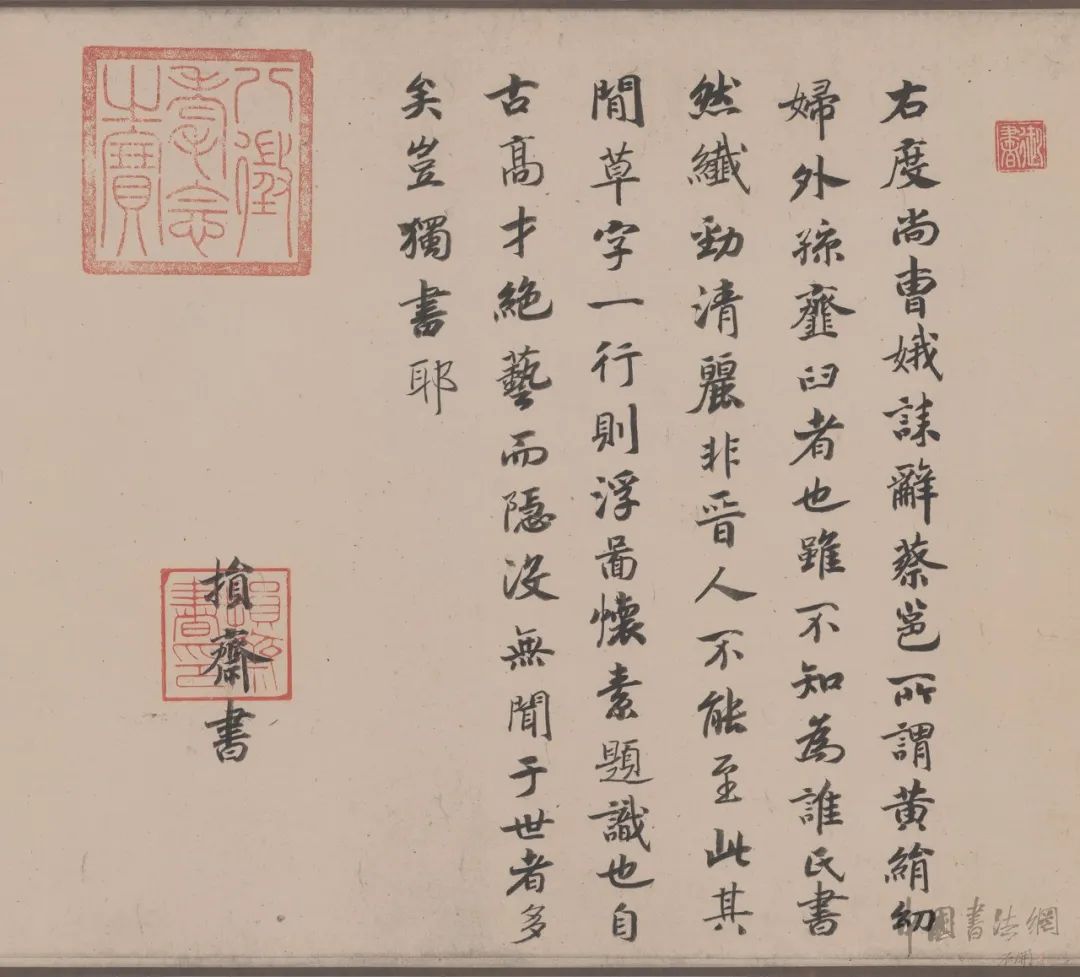 右度尚曹娥誄辭蔡邕所謂黄絹幼
婦外孫虀臼者也雖不知為誰氏書
然纖勁清麗非晉人不能至此其
閒草字一行則浮圖懷素題識也自
古高才絶藝而隱没無聞于世者多
矣豈獨書耶
損齋書
御書
八徵耄念之寶
損齋書印
中國書法網